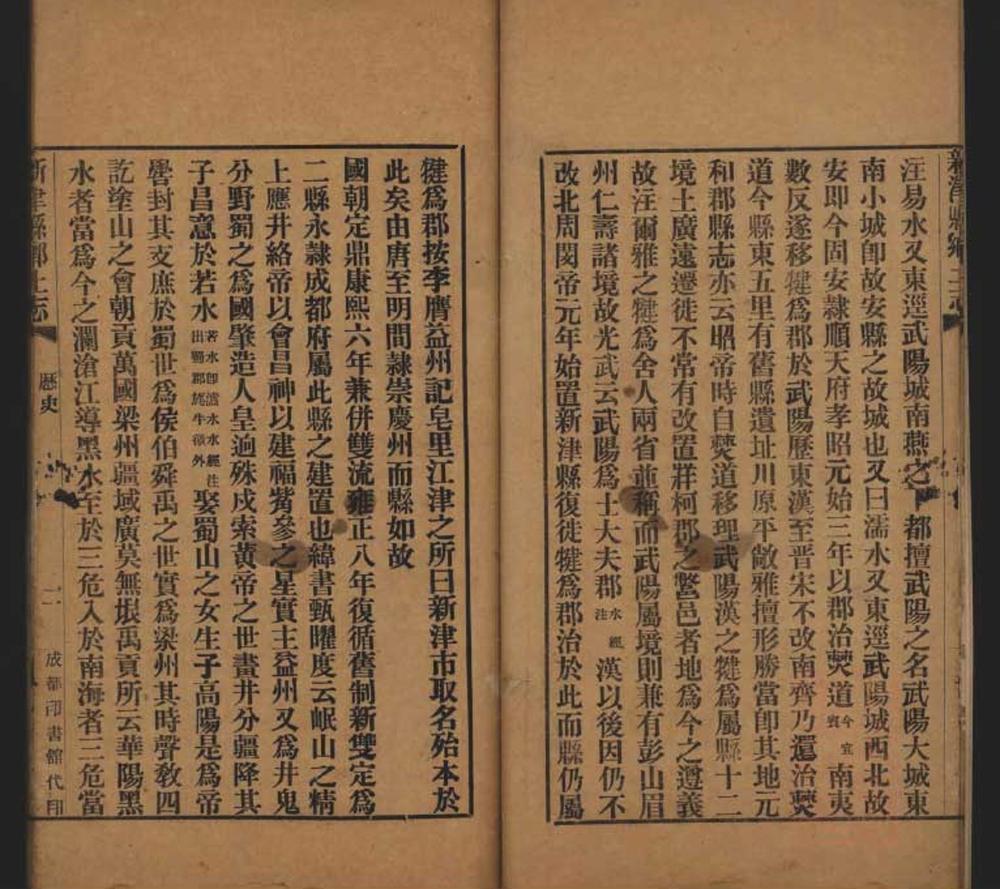 新津縣鄉土志
注易水又東逕武陽城南燕之下都擅武陽之名武陽大城東
南小城卽故安縣之故城也又曰濡水又東逕武陽城西北故
安即今固安隸順天府孝昭元始三年以郡治僰道今宜賓南夷
數反遂移犍爲郡於武陽歷東漢至晉宋不改南齊乃還治僰
道今縣東五里有舊縣遺址川原平敞雅擅形勝當卽其地元
和郡縣志亦云昭帝時自僰道移理武陽漢之犍爲屬縣十二
境土廣遠遷徙不常有改置牂柯郡之鷩邑者地爲今之遵義
故注爾雅之犍爲舍人兩省並稱而武陽屬境則兼有彭山眉
州仁壽諸境故光武云武陽爲士大夫郡水經注漢以後因仍不
改北周閔帝元年始置新津縣復徙犍爲郡治於此而縣仍屬
犍爲郡按李膺益州記皂里江津之所曰新津市取名殆本於
此矣由唐至明間隸崇慶州而縣如故
國朝定鼎康熙六年兼併雙流雍正八年復循舊制新雙定爲
二縣永隸成都府屬此縣之建置也緯書甄曜度云岷山之精
上應井絡帝以會昌神以建福觜參之星實主益州又爲井鬼
分野蜀之爲國肇造人皇迥殊戍索黃帝之世畫井分疆降其
子昌意於若水若水卽瀘水水經注出蜀郡旄牛徼外娶蜀山之女生子高陽是爲帝
嚳封其支庶於蜀世爲侯伯舜禹之世實爲梁州其時聲敎四
訖塗山之會朝貢萬國梁州疆域廣莫無垠禹貢所云華陽黑
水者當爲今之瀾滄江導黑水至於三危入於南海者三危當
新津縣鄉土志
歷史
二
成都印書館代印